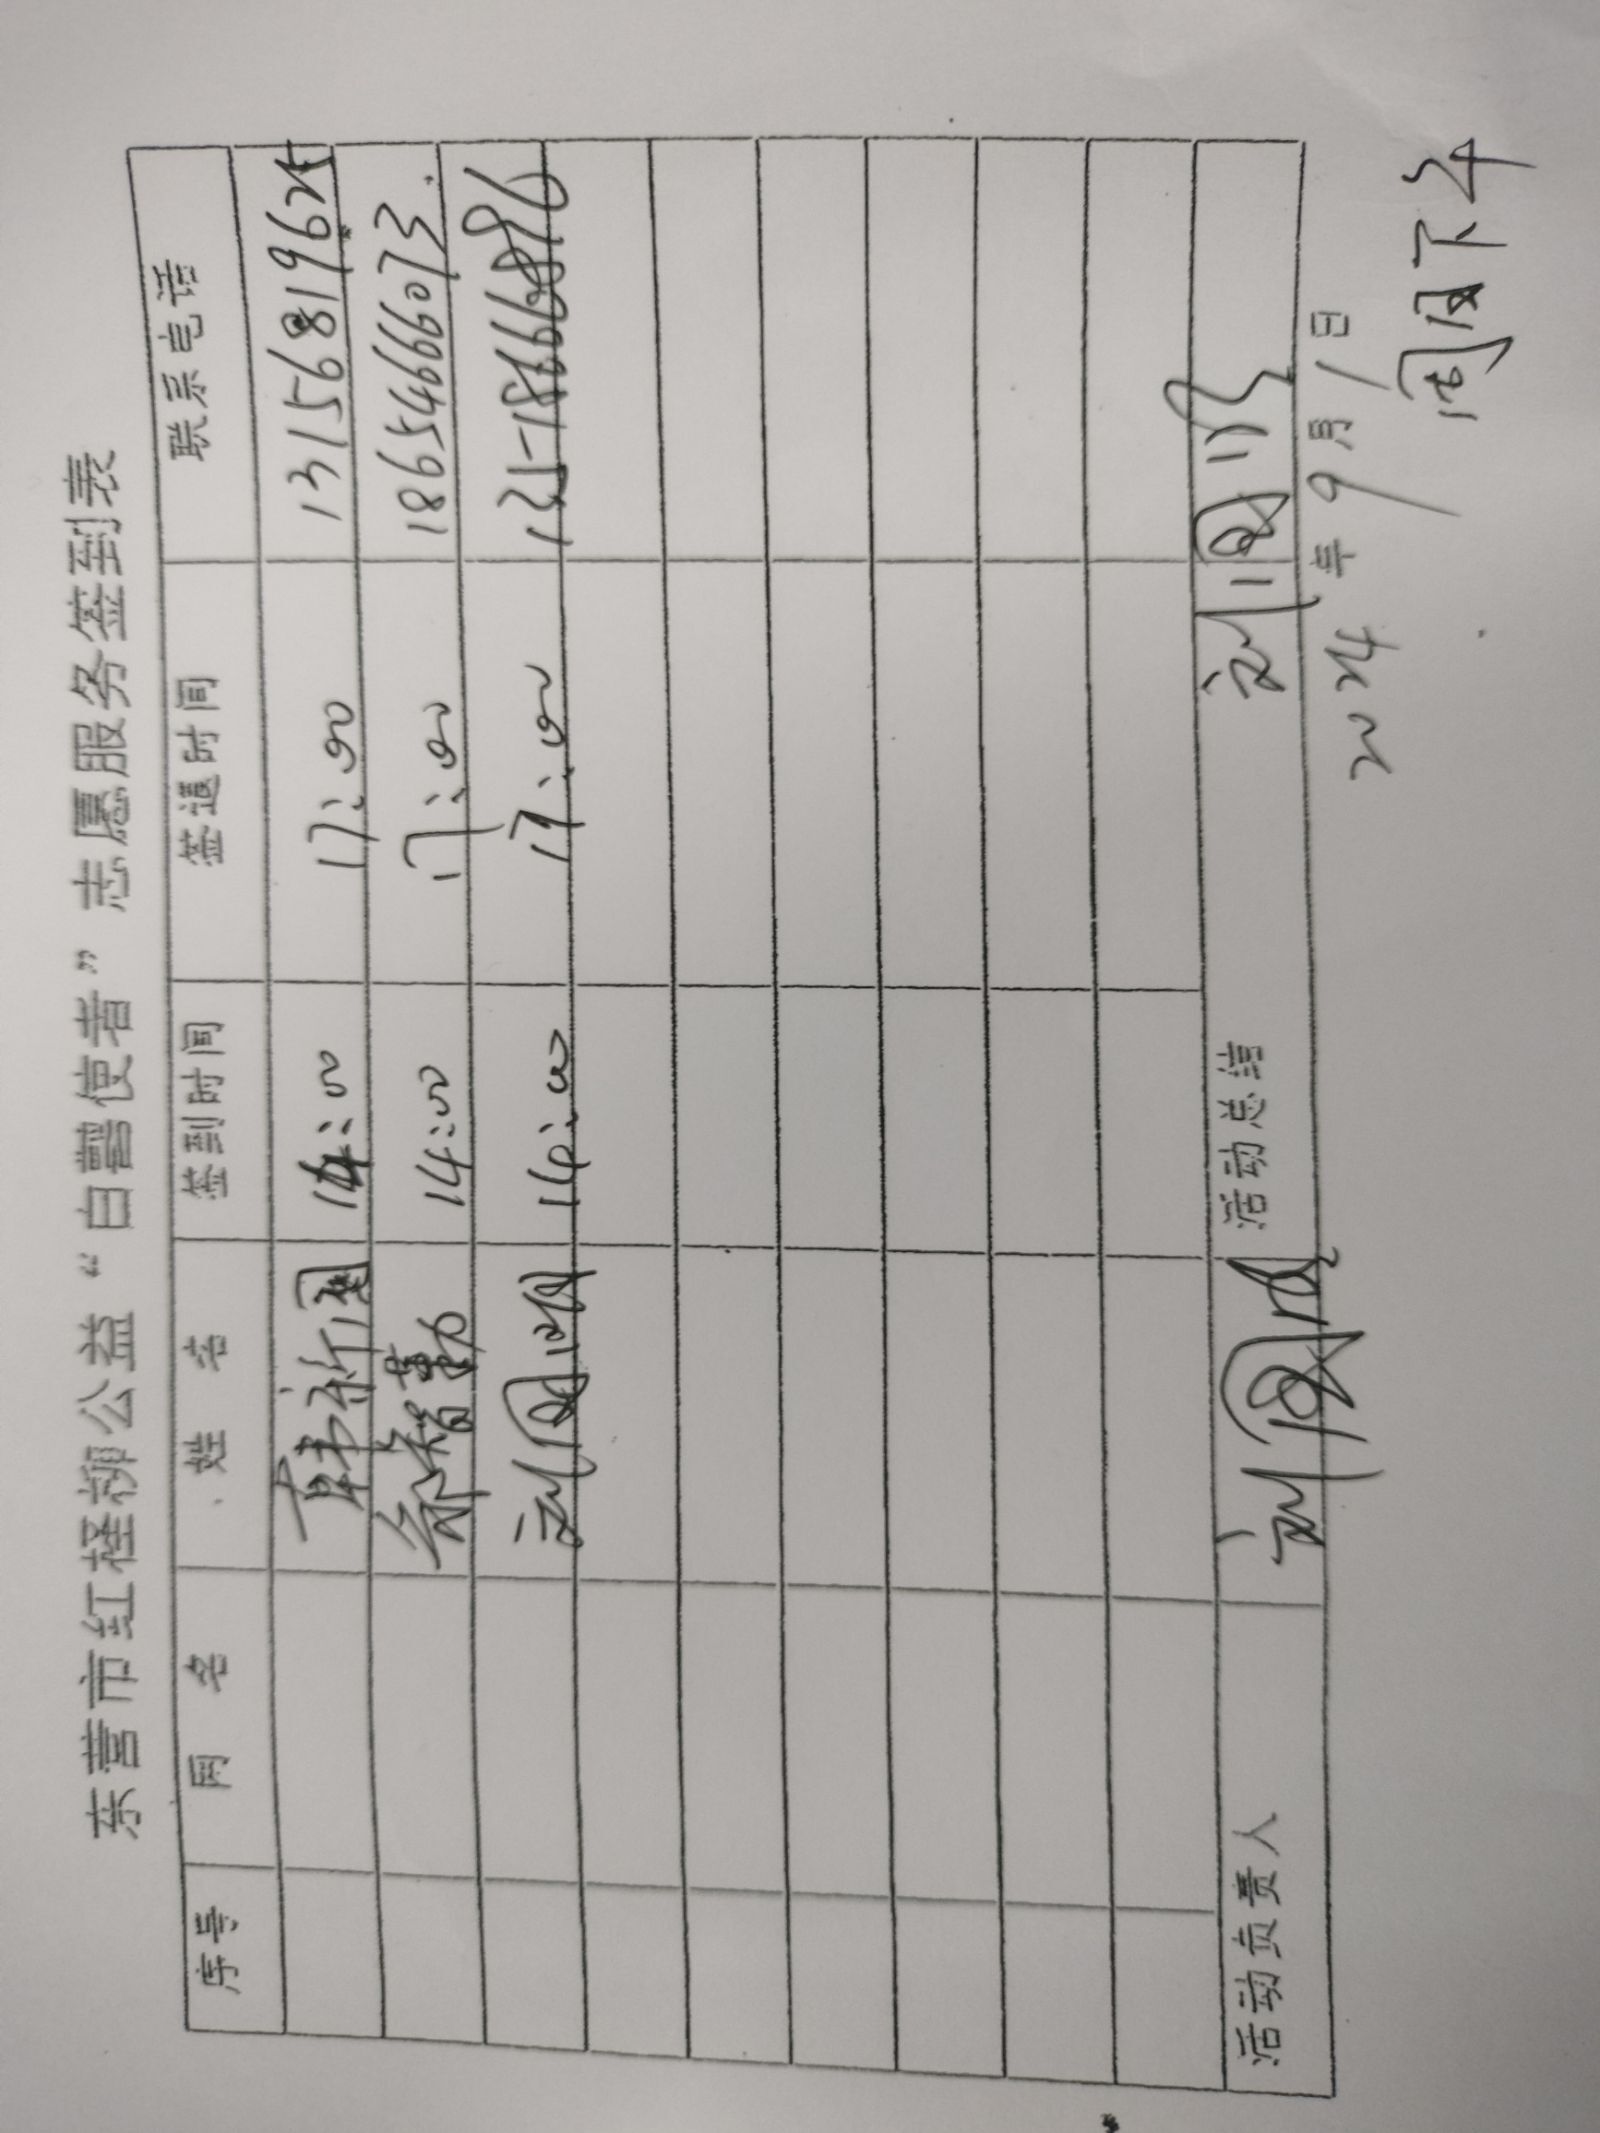 东营市红柽柳公益“自营使者”志愿服务签到表
序号 网 名 姓 名 签到时间 签退时间 联系电话
14:00 17:00 13156819625
徐智勤 14:00 17:00 18654666073
14:00 17:00
活动负责人 活动总结
年9月1日
周日下午